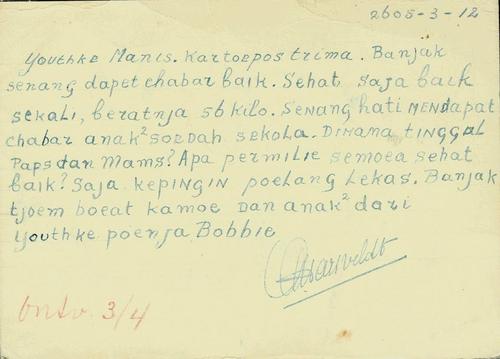 2605-3-12
Youthke Manis. Kartoepos trima. Banjak
senang dapet chabar baik. Sehat saja baik
sekali, beratnja 56 kilo. Senang hati mendapat
chabar anak² soedah sekola. Dimana tinggal
Paps dan Mams? Apa permilie semoea sehat
baik? Saja kepingin poelang lekas. Banjak
tjoem boeat kamoe dan anak² dari
Youthke poenja Bobbie
ontv. 3/4